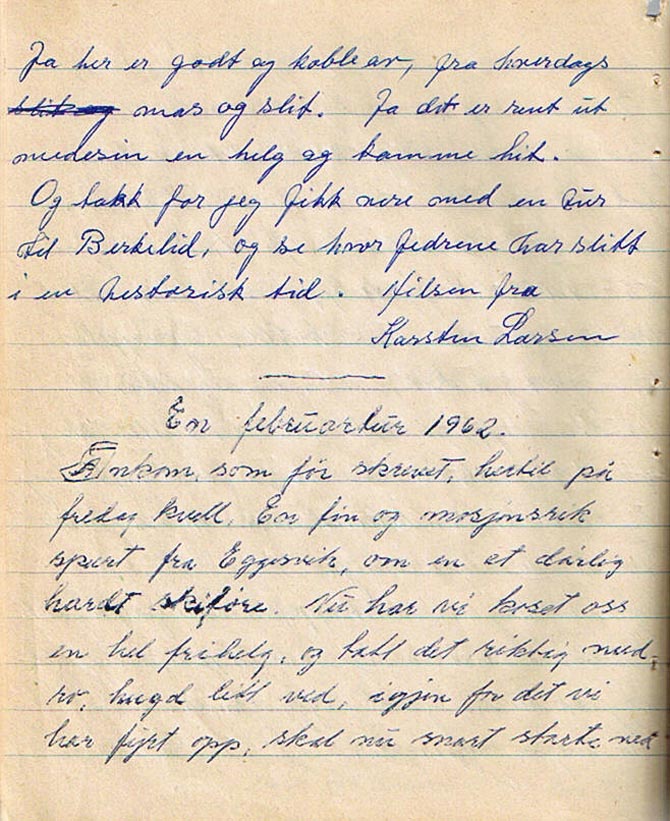 Ja her er godt og koble av, fra hverdags
mas og slit. Ja det er rent ut
medesin en helg og komme hit.
Og takk for jeg fikk vere med en tur
til Berkelid, og se hvor fedrene har slitt
i en hestorisk tid. Hilsen fra
Karsten Larsen
En februartur 1962.
Ankom, som før skrevet, hertil på
fredag kvell. En fin og mosjonsrik
spurt fra Eggesvik, om en et dårlig
hardt skiføre. Nu har vi koset oss
en hel frihelg, og tatt det riktig med
ro, hugd litt ved, igjen for det vi
har fyrt opp, skal nu snart starte ned